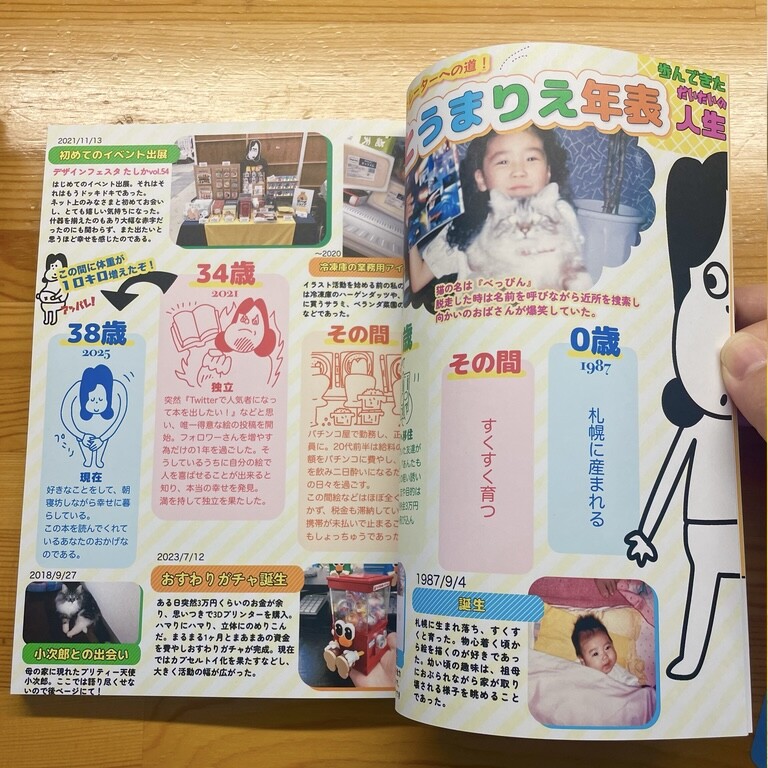 ーターへの道！
うまりえ年表
歩んできた
だいたいの
人生
猫の名は『べっぴん』
脱走した時は名前を呼びながら近所を捜索し
向かいのおばさんが爆笑していた。
0歳
1987
札幌に産まれる
その間
すくすく育つ
1987/9/4
誕生
札幌に生まれ落ち、すくす
くと育った。物心着く頃か
ら絵を描くのが好きであっ
た。幼い頃の趣味は、祖母
におぶられながら家が取り
壊される様子を眺めること
であった。
2021/11/13
初めてのイベント出展
デザインフェスタ たしかvol.54
はじめてのイベント出展。それはそ
れはもうドッキドキであった。
ネット上のみなさまと初めてお会い
し、とても嬉しい気持ちになった。
什器を揃えたのもあり大幅な赤字だ
ったのにも関わらず、また出たいと
思うほど幸せを感じたのである。
〜2020
冷凍庫の業務用アイ
イラスト活動を始める前の私の
は冷凍庫のハーゲンダッツや、
に買うサラミ、ベランダ菜園の
などであった。
この間に体重が
10キロ増えたぞ！
アッパレ！
34歳
2021
独立
突然『Twitterで人気者になっ
て本を出したい！』などと思
い、唯一得意な絵の投稿を開
始。フォロワーさんを増やす
為だけの1年を過ごした。そ
うしているうちに自分の絵で
人を喜ばせることが出来ると
知り、本当の幸せを発見。
満を持して独立を果たした。
その間
パチンコ屋で勤務し、正
員に。20代前半は給料の
額をパチンコに費やし、
を飲み二日酔いになるだ
の日々を過ごす。
この間絵などはほぼ全く
かず、税金も滞納してい
携帯が未払いで止まるこ
もしょっちゅうであった
38歳
2025
現在
好きなことをして、朝
寝坊しながら幸せに暮
らしている。
この本を読んでくれて
いるあなたのおかげな
のである。
2018/9/27
小次郎との出会い
母の家に現れたプリティー天使
小次郎。ここでは語り尽くせな
いので後ページにて！
2023/7/12
おすわりガチャ誕生
ある日突然3万円くらいのお金が余
り、思いつきで3Dプリンターを購入。
ハマりにハマり、立体にのめりこん
だ。まるまる1ヶ月とまあまあの資金
を費やしおすわりガチャが完成。現在
ではカプセルトイ化を果たすなどし、
大きく活動の幅が広がった。